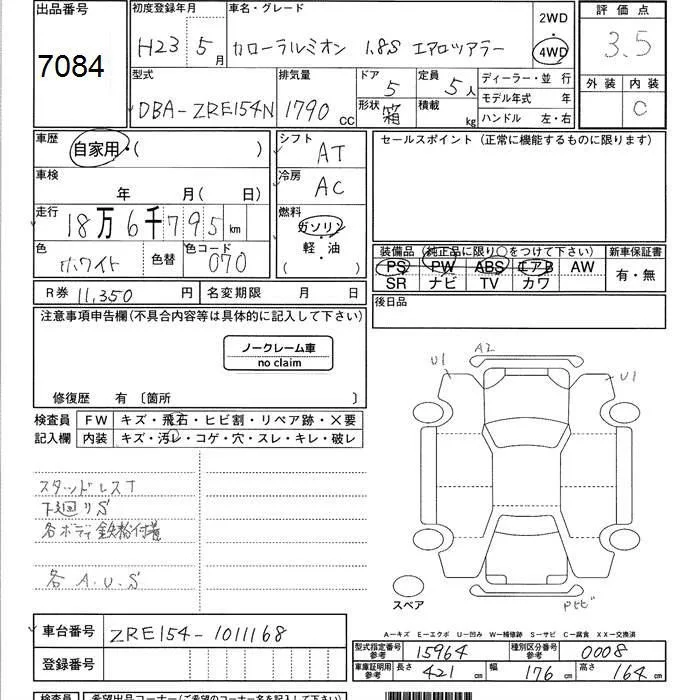 出品番号
7084
初度登録年月
H23 5月
車名・グレード
カローラルミオン 1.8S エアロツアラー
2WD
4WD
評価点
3.5
外装 内装
C
型式
DBA-ZRE154N
排気量
1790 CC
ドア
5
形状
箱
定員
5人
積載
kg
ディーラー・並行
モデル年式 年
ハンドル 左・右
車歴
自家用・( )
シフト
AT
車検
年 月( 日)
冷房
AC
走行
18万6千795km
燃料
ガソリン
軽・油
( )
色
ホワイト
色替
色コード
070
R券 11,350 円
名変期限 月 日
セールスポイント(正常に機能するものに限ります)
装備品(純正品に限り○をつけて下さい)
新車保証書
PS PW ABS エアB AW
SR ナビ TV カワ
有・無
後日品
注意事項申告欄(不具合内容等は具体的に記入して下さい)
ノークレーム車
no claim
修復歴 有〔箇所 〕
検査員
記入欄
FW キズ・飛石・ヒビ割・リペア跡・×要
内装 キズ・汚レ・コゲ・穴・スレ・キレ・破レ
スタッドレスT
下廻りS
各ボディ鉄粉付着
各A.U.S
U1
A2
U1
スペア
A-キズ E-エクボ U-凹み W-補修跡 S-サビ C-腐食 XX-交換済
車台番号 ZRE154-1011168
登録番号
型式指定番号
参考
15964
種別区分番号
参考
0008
車庫証明用
参考
長さ 421 cm 幅 176 cm 高さ 164 cm
検査員
希望出品コーナー(ご希望のコーナー名を記入下さい)